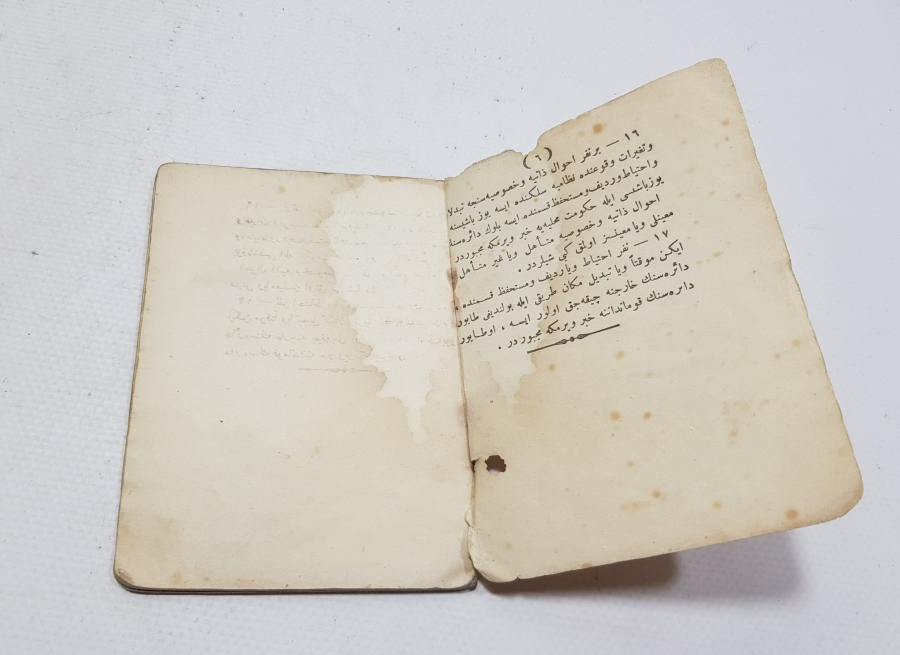 ( ٦ )
١٦ — بر نفر احوال ذاتيه و خصوصيه‌سنجه تبدلا
و تغيرات وقوعنده نظاميه سلكنده ايسه يوز باشيسنه
و احتياط و رديف و مستحفظ قسمنده ايسه بلوك دائره‌سنك
يوزباشيسى ايله حكومت محليه‌يه خبر ويرمكه مجبوردر
احوال ذاتيه و خصوصيه متأهل ويا غير متأهل
معينلى ويا معينسز اولق كبى شيلردر .
١٧ — نفر احتياط ويا رديف و مستحفظ قسمنده
ايكن موقتاً ويا تبديل مكان طريق ايله بولنديغى طابور
دائره‌سنك خارجنه چيقه‌جق اولور ايسه ، او طابور
دائره‌سنك قوماندانه خبر ويرمكه مجبوردر .